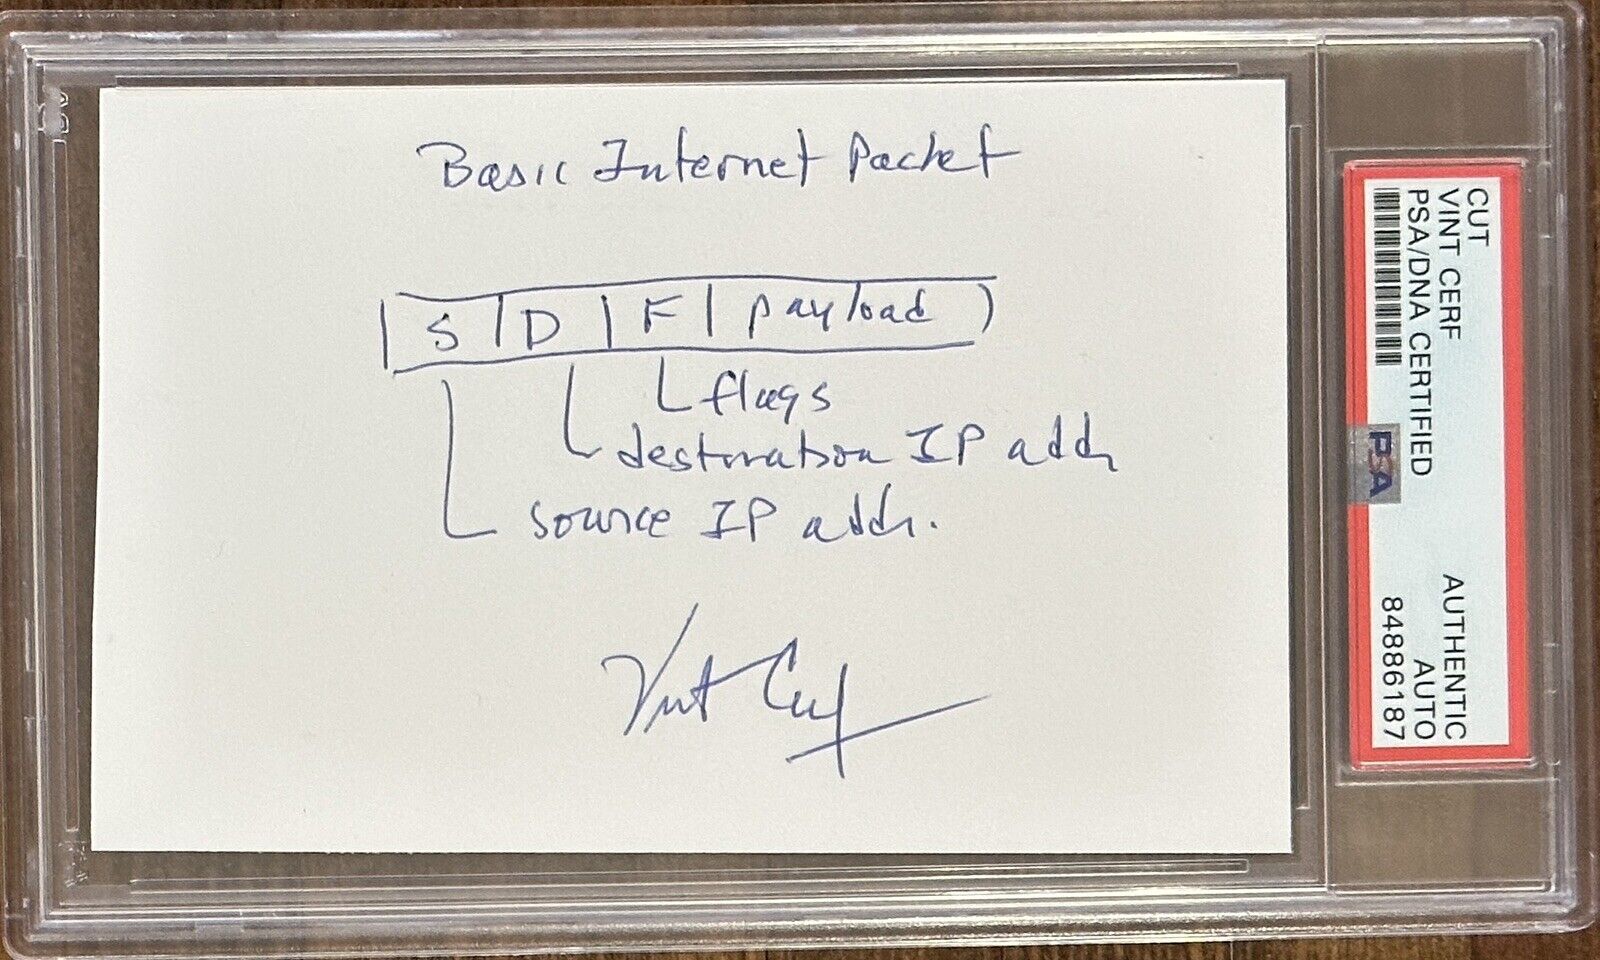 Basic Internet Packet
S D F payload
flags
destination IP addr
source IP addr.
Vint Cerf
CUT
VINT CERF
PSA/DNA CERTIFIED
PSA
AUTHENTIC
AUTO
84886187